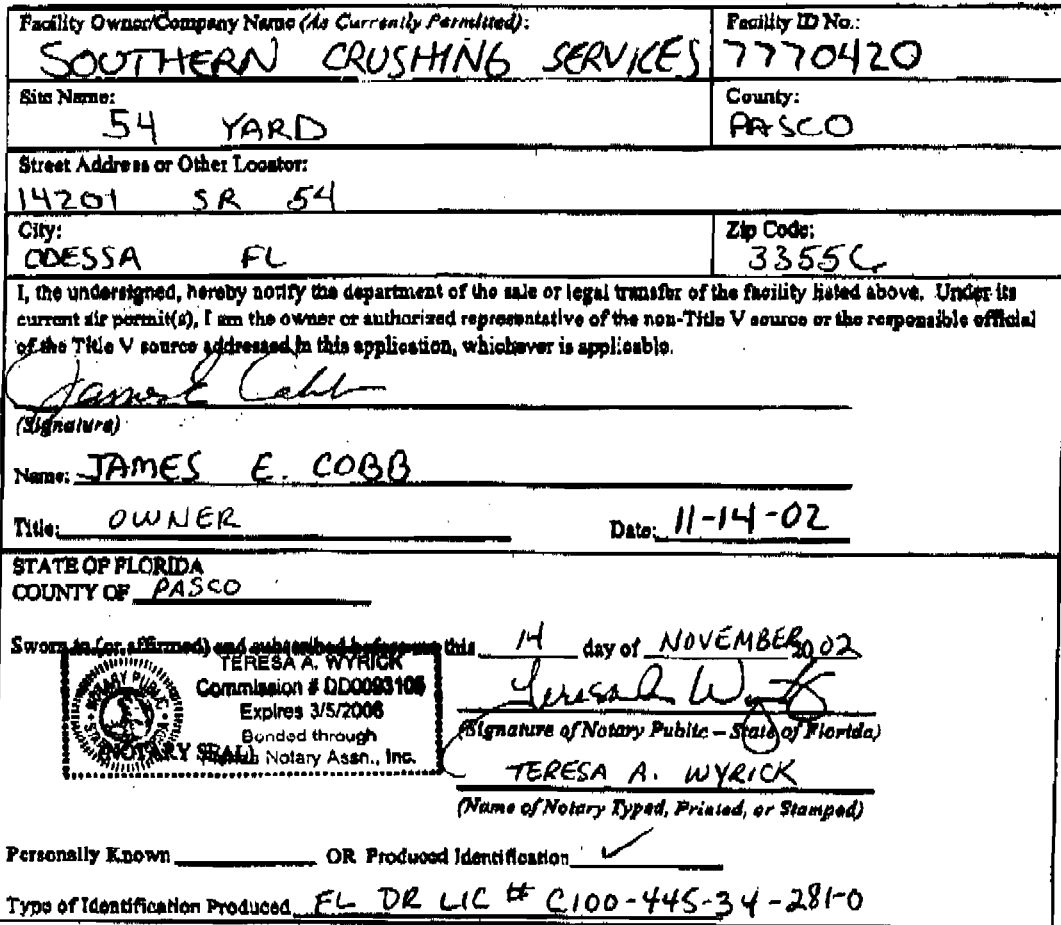 Facility Owner/Company Name (As Currently Permitted):
SOUTHERN CRUSHING SERVICES
Facility ID No.:
7770420
Site Name:
54 YARD
County:
PASCO
Street Address or Other Locator:
14201 SR 54
City:
ODESSA FL
Zip Code:
33556
I, the undersigned, hereby notify the department of the sale or legal transfer of the facility listed above. Under its
current air permit(s), I am the owner or authorized representative of the non-Title V source or the responsible official
of the Title V source addressed in this application, whichever is applicable.
James E Cobb
(Signature)
Name: JAMES E. COBB
Title: OWNER Date: 11-14-02
STATE OF FLORIDA
COUNTY OF PASCO
Sworn to (or affirmed) and subscribed before me this 14 day of NOVEMBER, 2002
TERESA A. WYRICK
Commission # DD0093105
Expires 3/5/2006
Bonded through
Notary Assn., Inc.
NOTARY PUBLIC
(NOTARY SEAL)
Teresa A Wyrick
(Signature of Notary Public – State of Florida)
TERESA A. WYRICK
(Name of Notary Typed, Printed, or Stamped)
Personally Known OR Produced Identification ✓
Type of Identification Produced FL DR LIC # C100-445-34-281-0